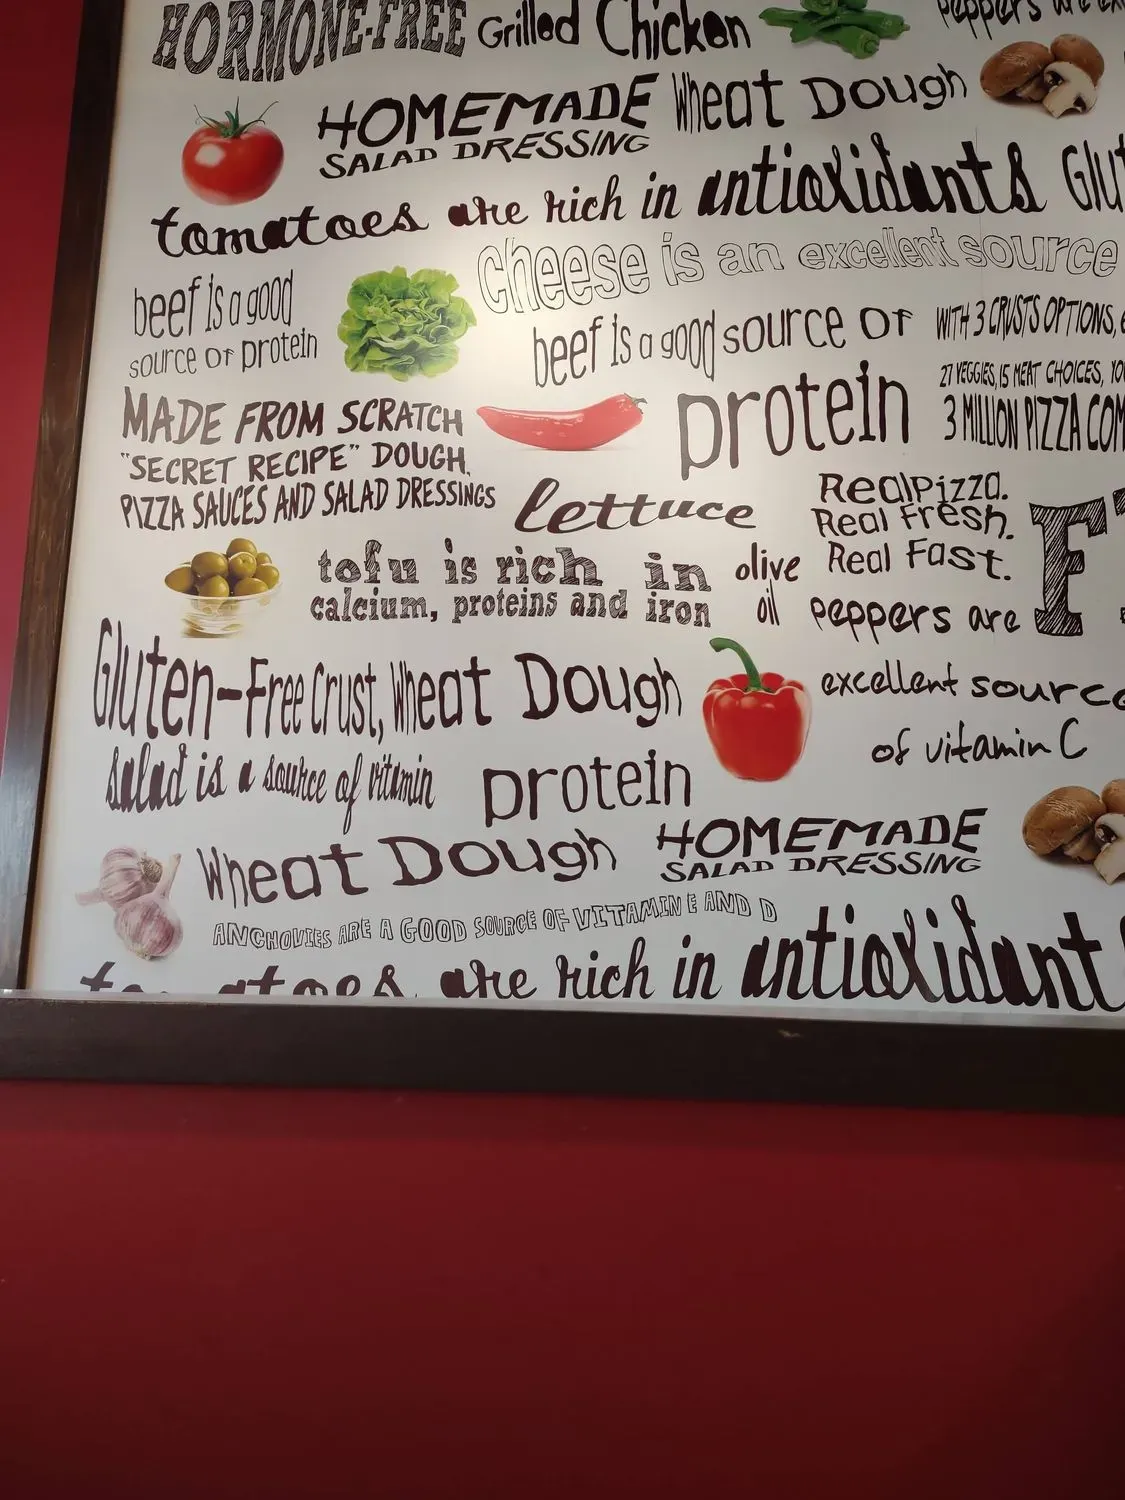 HORMONE-FREE Grilled Chicken
peppers are
HOMEMADE
SALAD DRESSING
Wheat Dough
tomatoes are rich in antioxidants
cheese is an excellent source
beef is a good
source of protein
beef is a good source of
protein
WITH 3 CRUSTS OPTIONS,
27 VEGGIES, 15 MEAT CHOICES,
3 MILLION PIZZA
MADE FROM SCRATCH
"SECRET RECIPE" DOUGH,
PIZZA SAUCES AND SALAD DRESSINGS
lettuce
RealPizza.
Real Fresh.
Real Fast.
tofu is rich in
calcium, proteins and iron
olive
oil
peppers are
excellent source
of vitamin C
Gluten-Free Crust, Wheat Dough
salad is a source of vitamin
protein
Wheat Dough
HOMEMADE
SALAD DRESSING
ANCHOVIES ARE A GOOD SOURCE OF VITAMIN E AND D
tomatoes are rich in antioxidant